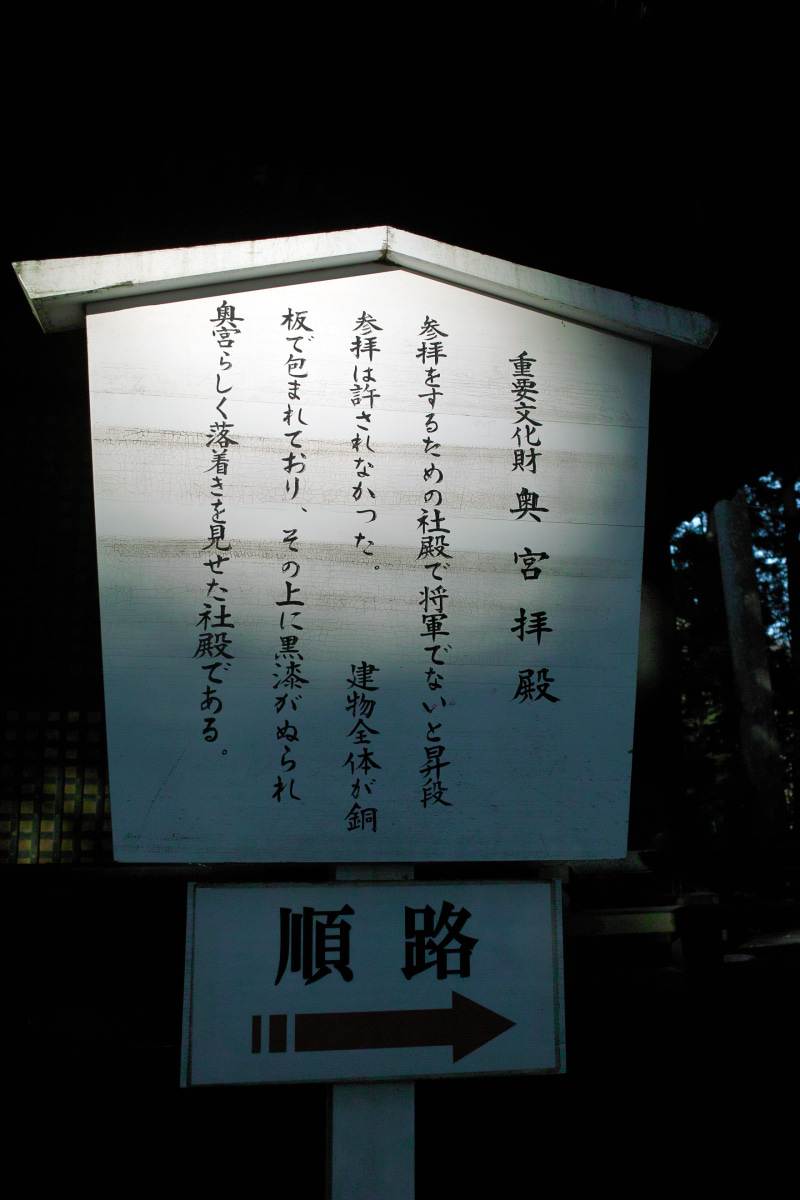 重要文化財 奥宮拝殿
参拝をするための社殿で将軍でないと昇段
参拝は許されなかった。 建物全体が銅
板で包まれており、その上に黒漆がぬられ
奥宮らしく落着きを見せた社殿である。
順路